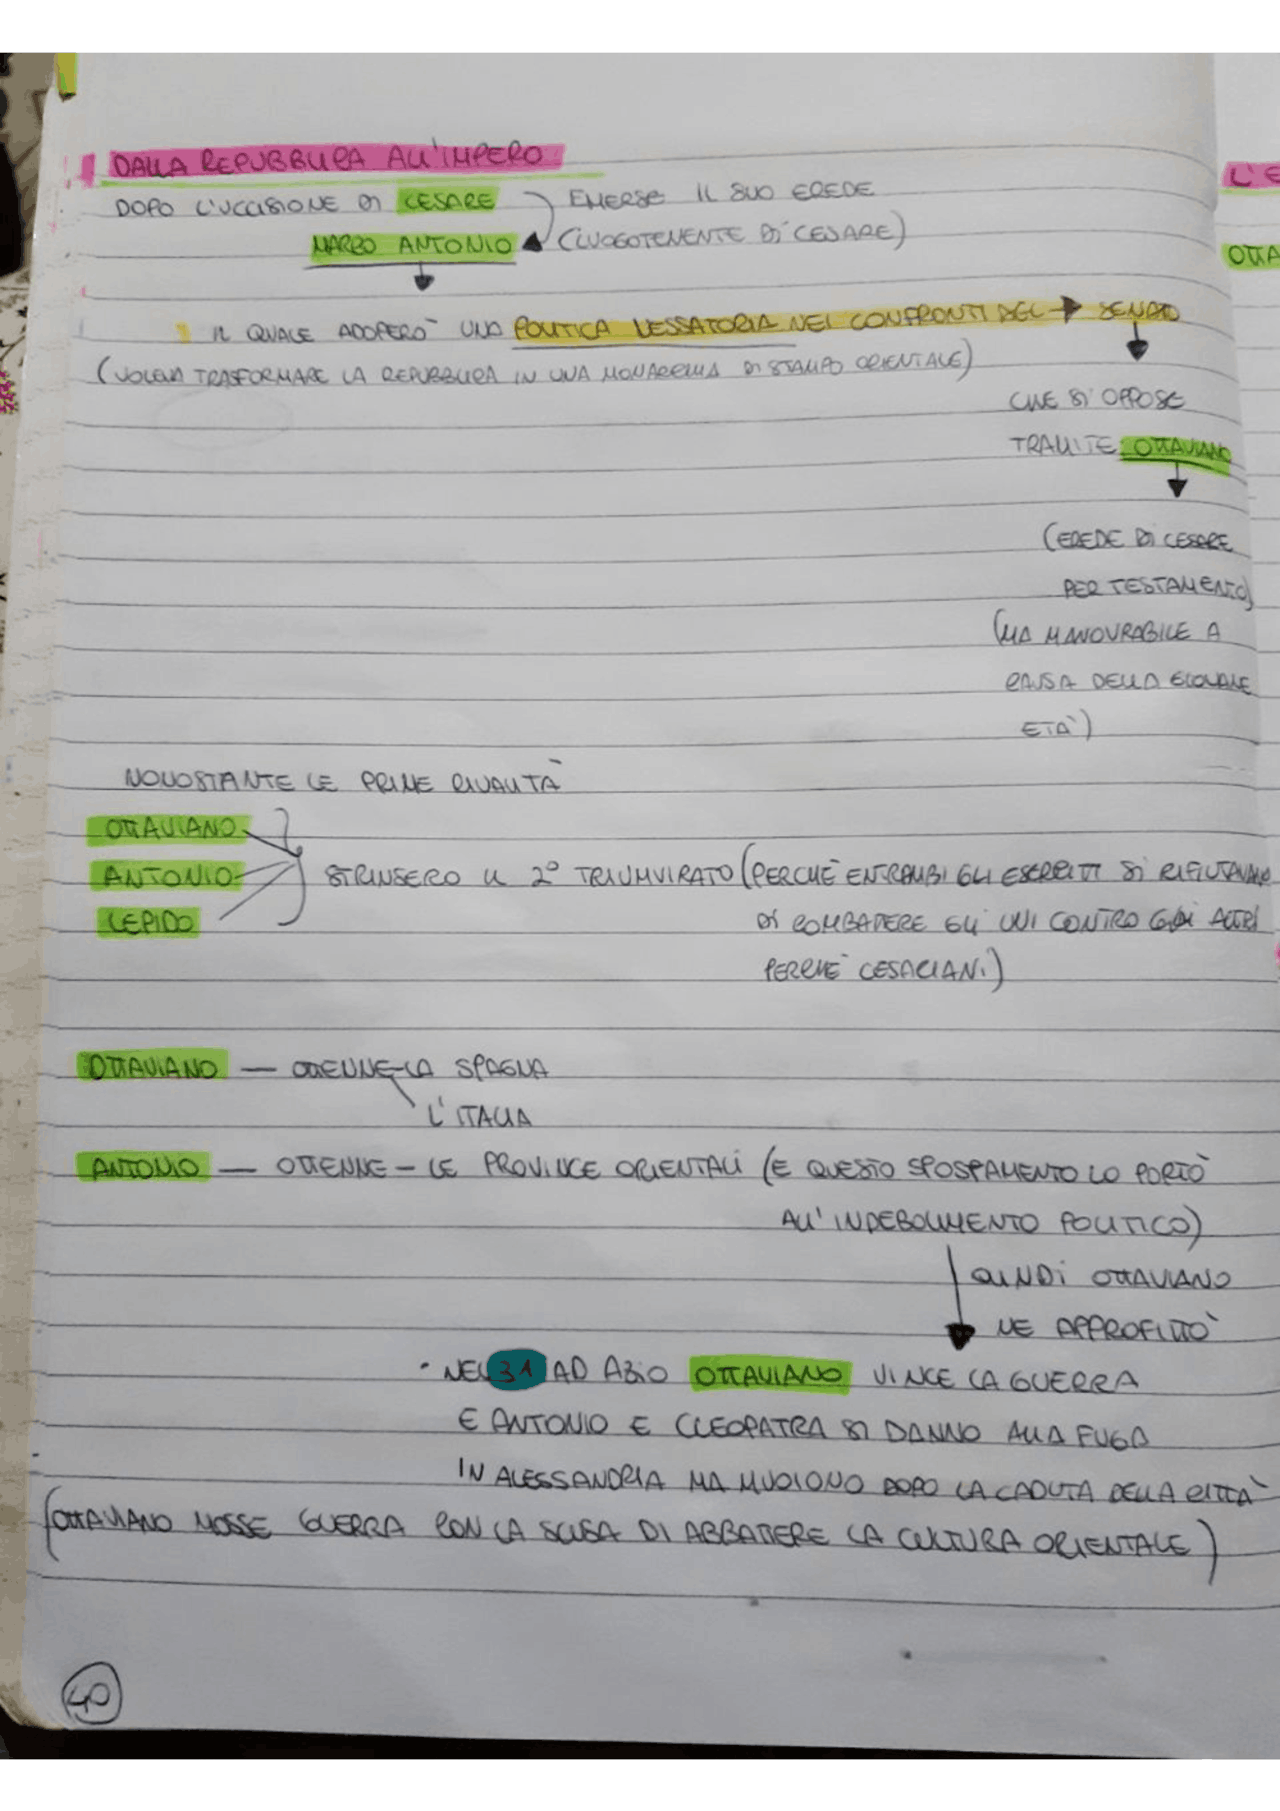 DALLA REPUBBLICA ALL'IMPERO
DOPO L'UCCISIONE DI CESARE EMERSE IL SUO EREDE
MARCO ANTONIO (LUOGOTENENTE DI CESARE)
IL QUALE ADOPERÒ UNA POLITICA VESSATORIA NEI CONFRONTI DEL → SENATO
(VOLEVA TRASFORMARE LA REPUBBLICA IN UNA MONARCHIA DI STAMPO ORIENTALE)
CHE SI OPPOSE
TRAMITE OTTAVIANO
(EREDE DI CESARE
PER TESTAMENTO)
(MA MANOVRABILE A
CAUSA DELLA GIOVANE
ETÀ)
NONOSTANTE LE PRIME RIVALITÀ
OTTAVIANO
ANTONIO
LEPIDO
STRINSERO IL 2° TRIUMVIRATO (PERCHÈ ENTRAMBI GLI ESERCITI SI RIFIUTAVANO
DI COMBATTERE GLI UNI CONTRO GLI ALTRI
PERCHÈ CESARIANI)
OTTAVIANO — OTTENNE LA SPAGNA
L'ITALIA
ANTONIO — OTTENNE — LE PROVINCE ORIENTALI (E QUESTO SPOSPAMENTO LO PORTÒ
ALL'INDEBOLIMENTO POLITICO)
QUINDI OTTAVIANO
NE APPROFITTÒ
• NEL 31 AD AZIO OTTAVIANO VINCE LA GUERRA
E ANTONIO E CLEOPATRA SI DANNO ALLA FUGA
IN ALESSANDRIA MA MUOIONO DOPO LA CADUTA DELLA CITTÀ
(OTTAVIANO MOSSE GUERRA CON LA SCUSA DI ABBATTERE LA CULTURA ORIENTALE)
40
L'E
OTTA